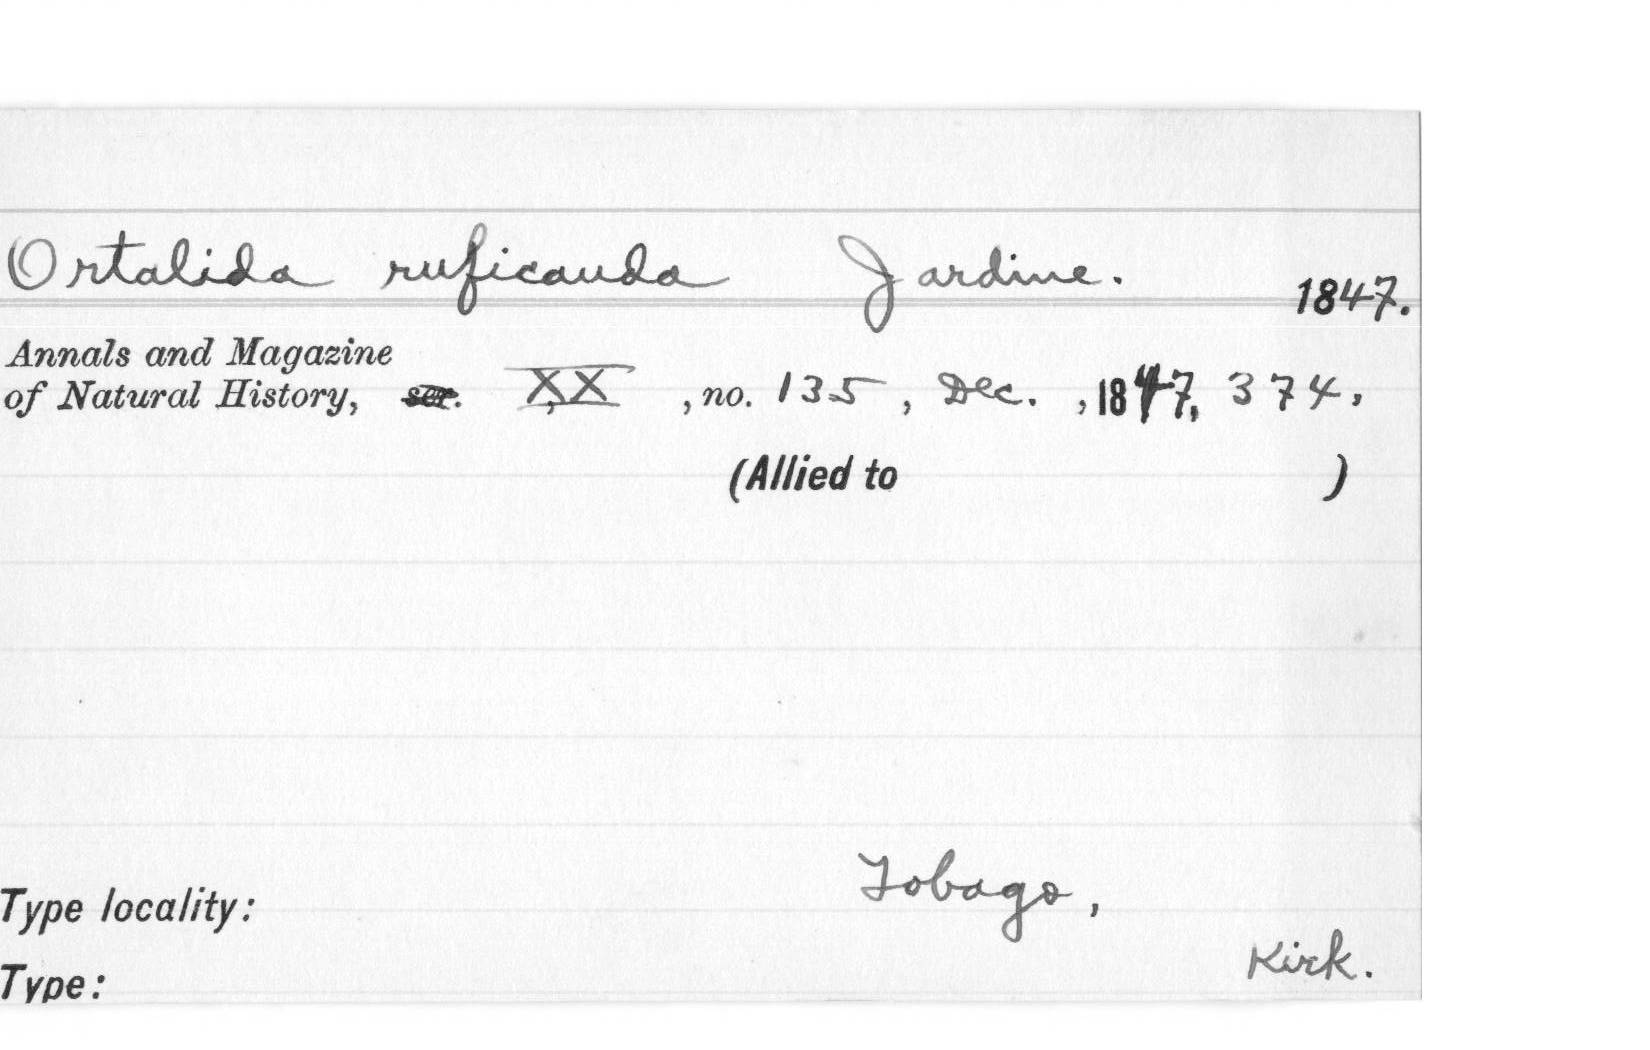 Ortalida ruficauda Jardine. 1847.
Annals and Magazine
of Natural History, ser. XX, no. 135, Dec., 1847, 374,
(Allied to )
Type locality: Tobago,
Kirk.
Type: